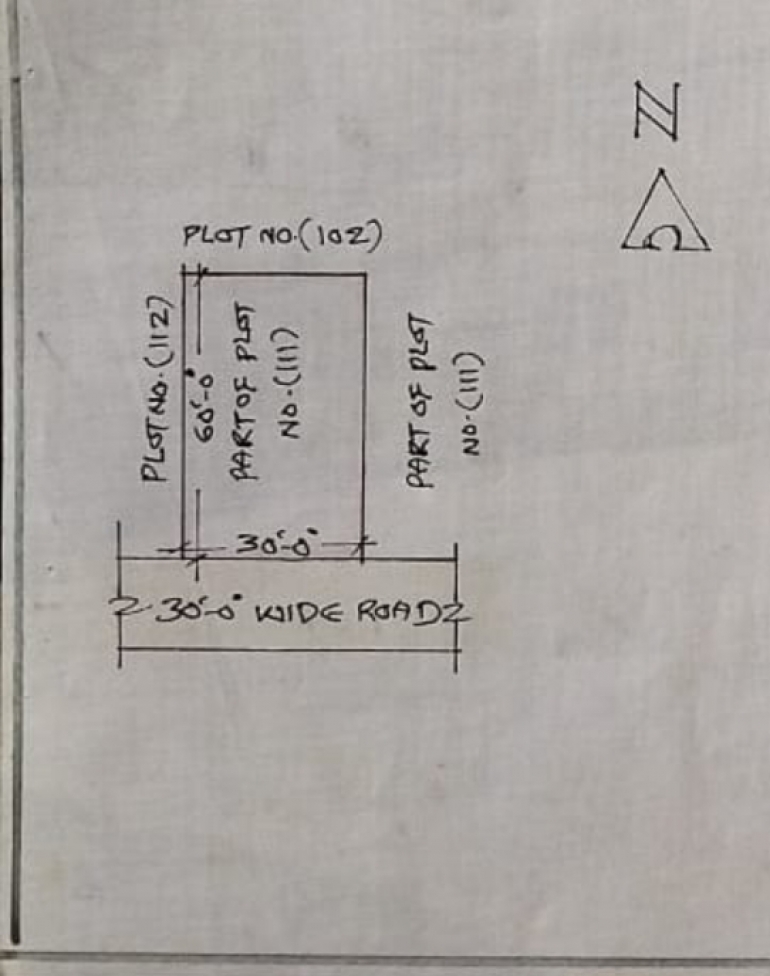 N
PLOT NO.(102)
PLOT NO.(112)
60'-0"
PART OF PLOT
NO.(111)
PART OF PLOT
NO.(111)
30'-0"
30'-0" WIDE ROAD